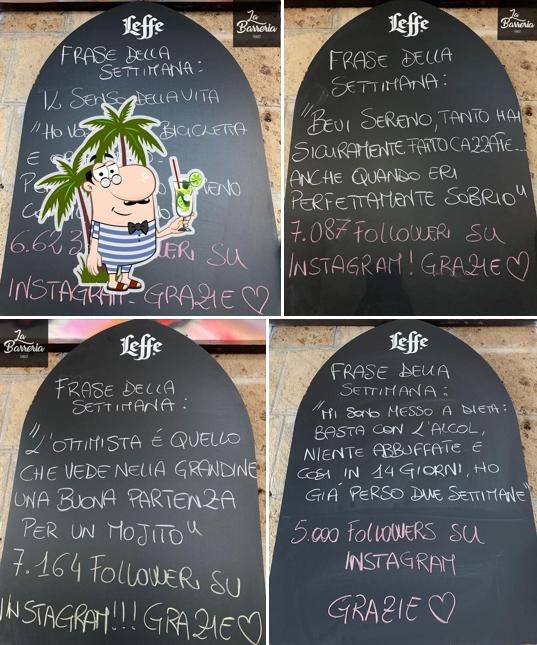 Leffe
La Barrería
FRASE DELLA
SETTIMANA:
IL SENSO DELLA VITA
"HO VO BICICLETTA
E
P ENO
6.623 WER SU
INSTAGRAM. GRAZIE ♡
Leffe
La Barrería
FRASE DELLA
SETTIMANA:
"BEVI SERENO, TANTO HAI
SICURAMENTE FATTO CAZZATE...
ANCHE QUANDO ERI
PERFETTAMENTE SOBRIO"
7.087 FOLLOWER SU
INSTAGRAM! GRAZIE ♡
La Barrería
Leffe
FRASE DELLA
SETTIMANA:
"L'OTTIMISTA É QUELLO
CHE VEDE NELLA GRANDINE
UNA BUONA PARTENZA
PER UN MOJITO"
7.164 FOLLOWER SU
INSTAGRAM!!! GRAZIE ♡
Leffe
FRASE DELLA
SETTIMANA:
"MI SONO MESSO A DIETA:
BASTA CON L'ALCOL,
NIENTE ABBUFFATE E
COSÌ IN 14 GIORNI, HO
GIÀ PERSO DUE SETTIMANE"
5.000 FOLLOWERS SU
INSTAGRAM
GRAZIE ♡